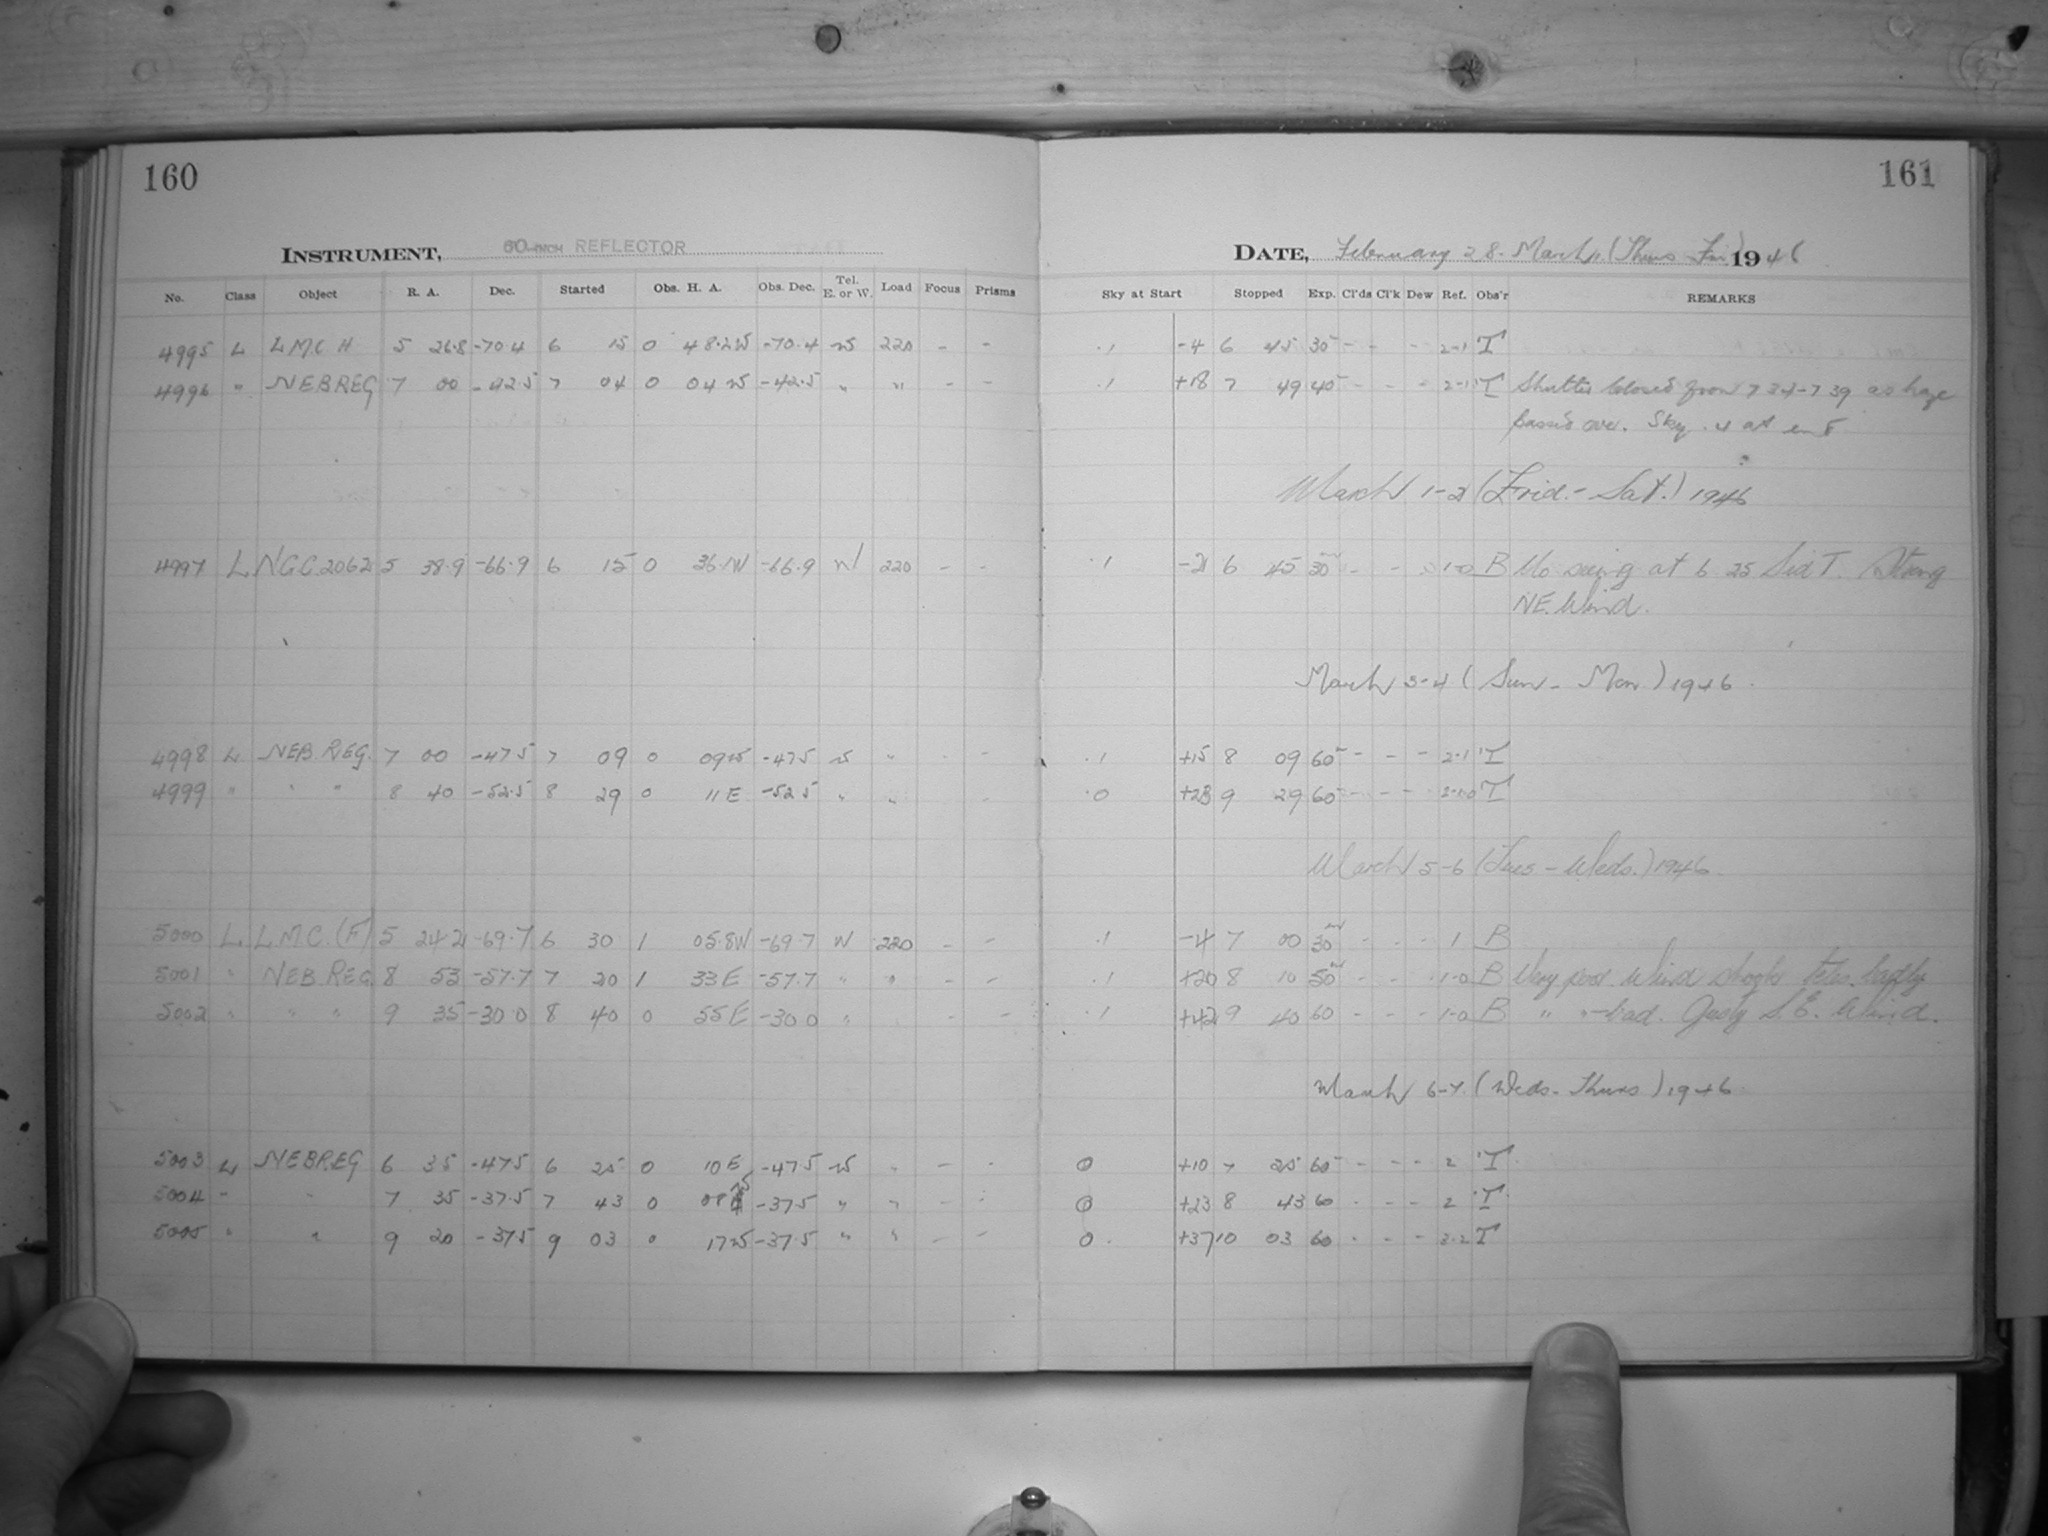 160
161
INSTRUMENT, 60-INCH REFLECTOR
DATE, February 28. March 1. (Thurs Fri) 1946
No. Class Object R. A. Dec. Started Obs. H. A. Obs. Dec. Tel. E. or W. Load Focus Prisms Sky at Start Stopped Exp. Cl'ds Cl'k Dew Ref. Obs'r REMARKS
4995 L L.M.C. H 5 26.8 -70.4 6 15 0 48.2W -70.4 W 220 - - .1 -4 6 45 30 - - - 2-1 T
4996 " NEB REG 7 00 -42.5 7 04 0 04 W -42.5 " " - - .1 +18 7 49 40 - - - 2-1 T Shutter closed from 7 34-7 39 as haze
passed over. Sky .4 at end
March 1-2 (Frid.- Sat.) 1946
4997 L NGC.2062 5 38.9 -66.9 6 15 0 36.1W -66.9 W 220 - - .1 -2 6 45 30 - - - 1-0 B No seeing at 6 25 Sid T. Strong
NE. Wind.
March 3-4 (Sun - Mon.) 1946.
4998 L NEB. REG. 7 00 -47.5 7 09 0 09W -47.5 W " - - .1 +15 8 09 60 - - - 2-1 T
4999 " " " 8 40 -52.5 8 29 0 11 E -52.5 " " - .0 +23 9 29 60 - - - 2-1.0 T
March 5-6 (Tues - Weds.) 1946.
5000 L L.M.C. (F) 5 24.2 -69.7 6 30 1 05.8W -69.7 W 220 - - .1 -4 7 00 30 - - - 1 B
5001 " NEB. REG. 8 53 -57.7 7 20 1 33 E -57.7 " " - - .1 +20 8 10 50 - - - 1-0 B Very poor. Wind shook teles. badly
5002 " " " 9 35 -30 0 8 40 0 55 E -30 0 " - - .1 +42 9 40 60 - - - 1-0 B " " -bad. Gusty S.E. Wind.
March 6-7. (Weds- Thurs) 1946.
5003 L NEB REG 6 35 -47.5 6 25 0 10 E -47.5 W " - - 0 +10 7 25 60 - - - 2 T
5004 " " 7 35 -37.5 7 43 0 08 W -37.5 " " - - 0 +23 8 43 60 - - - 2 T
5005 " " 9 20 -37.5 9 03 0 17W -37.5 " " - - 0. +37 10 03 60 - - - 3-2 T